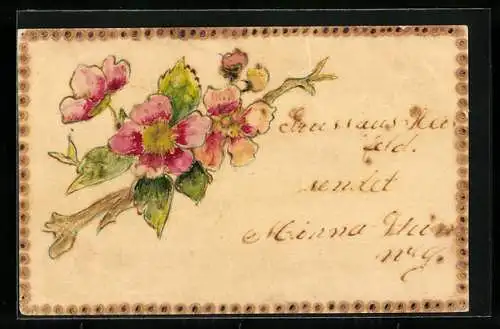 Gruss aus Neu
feld.
sendet
Minna Hein